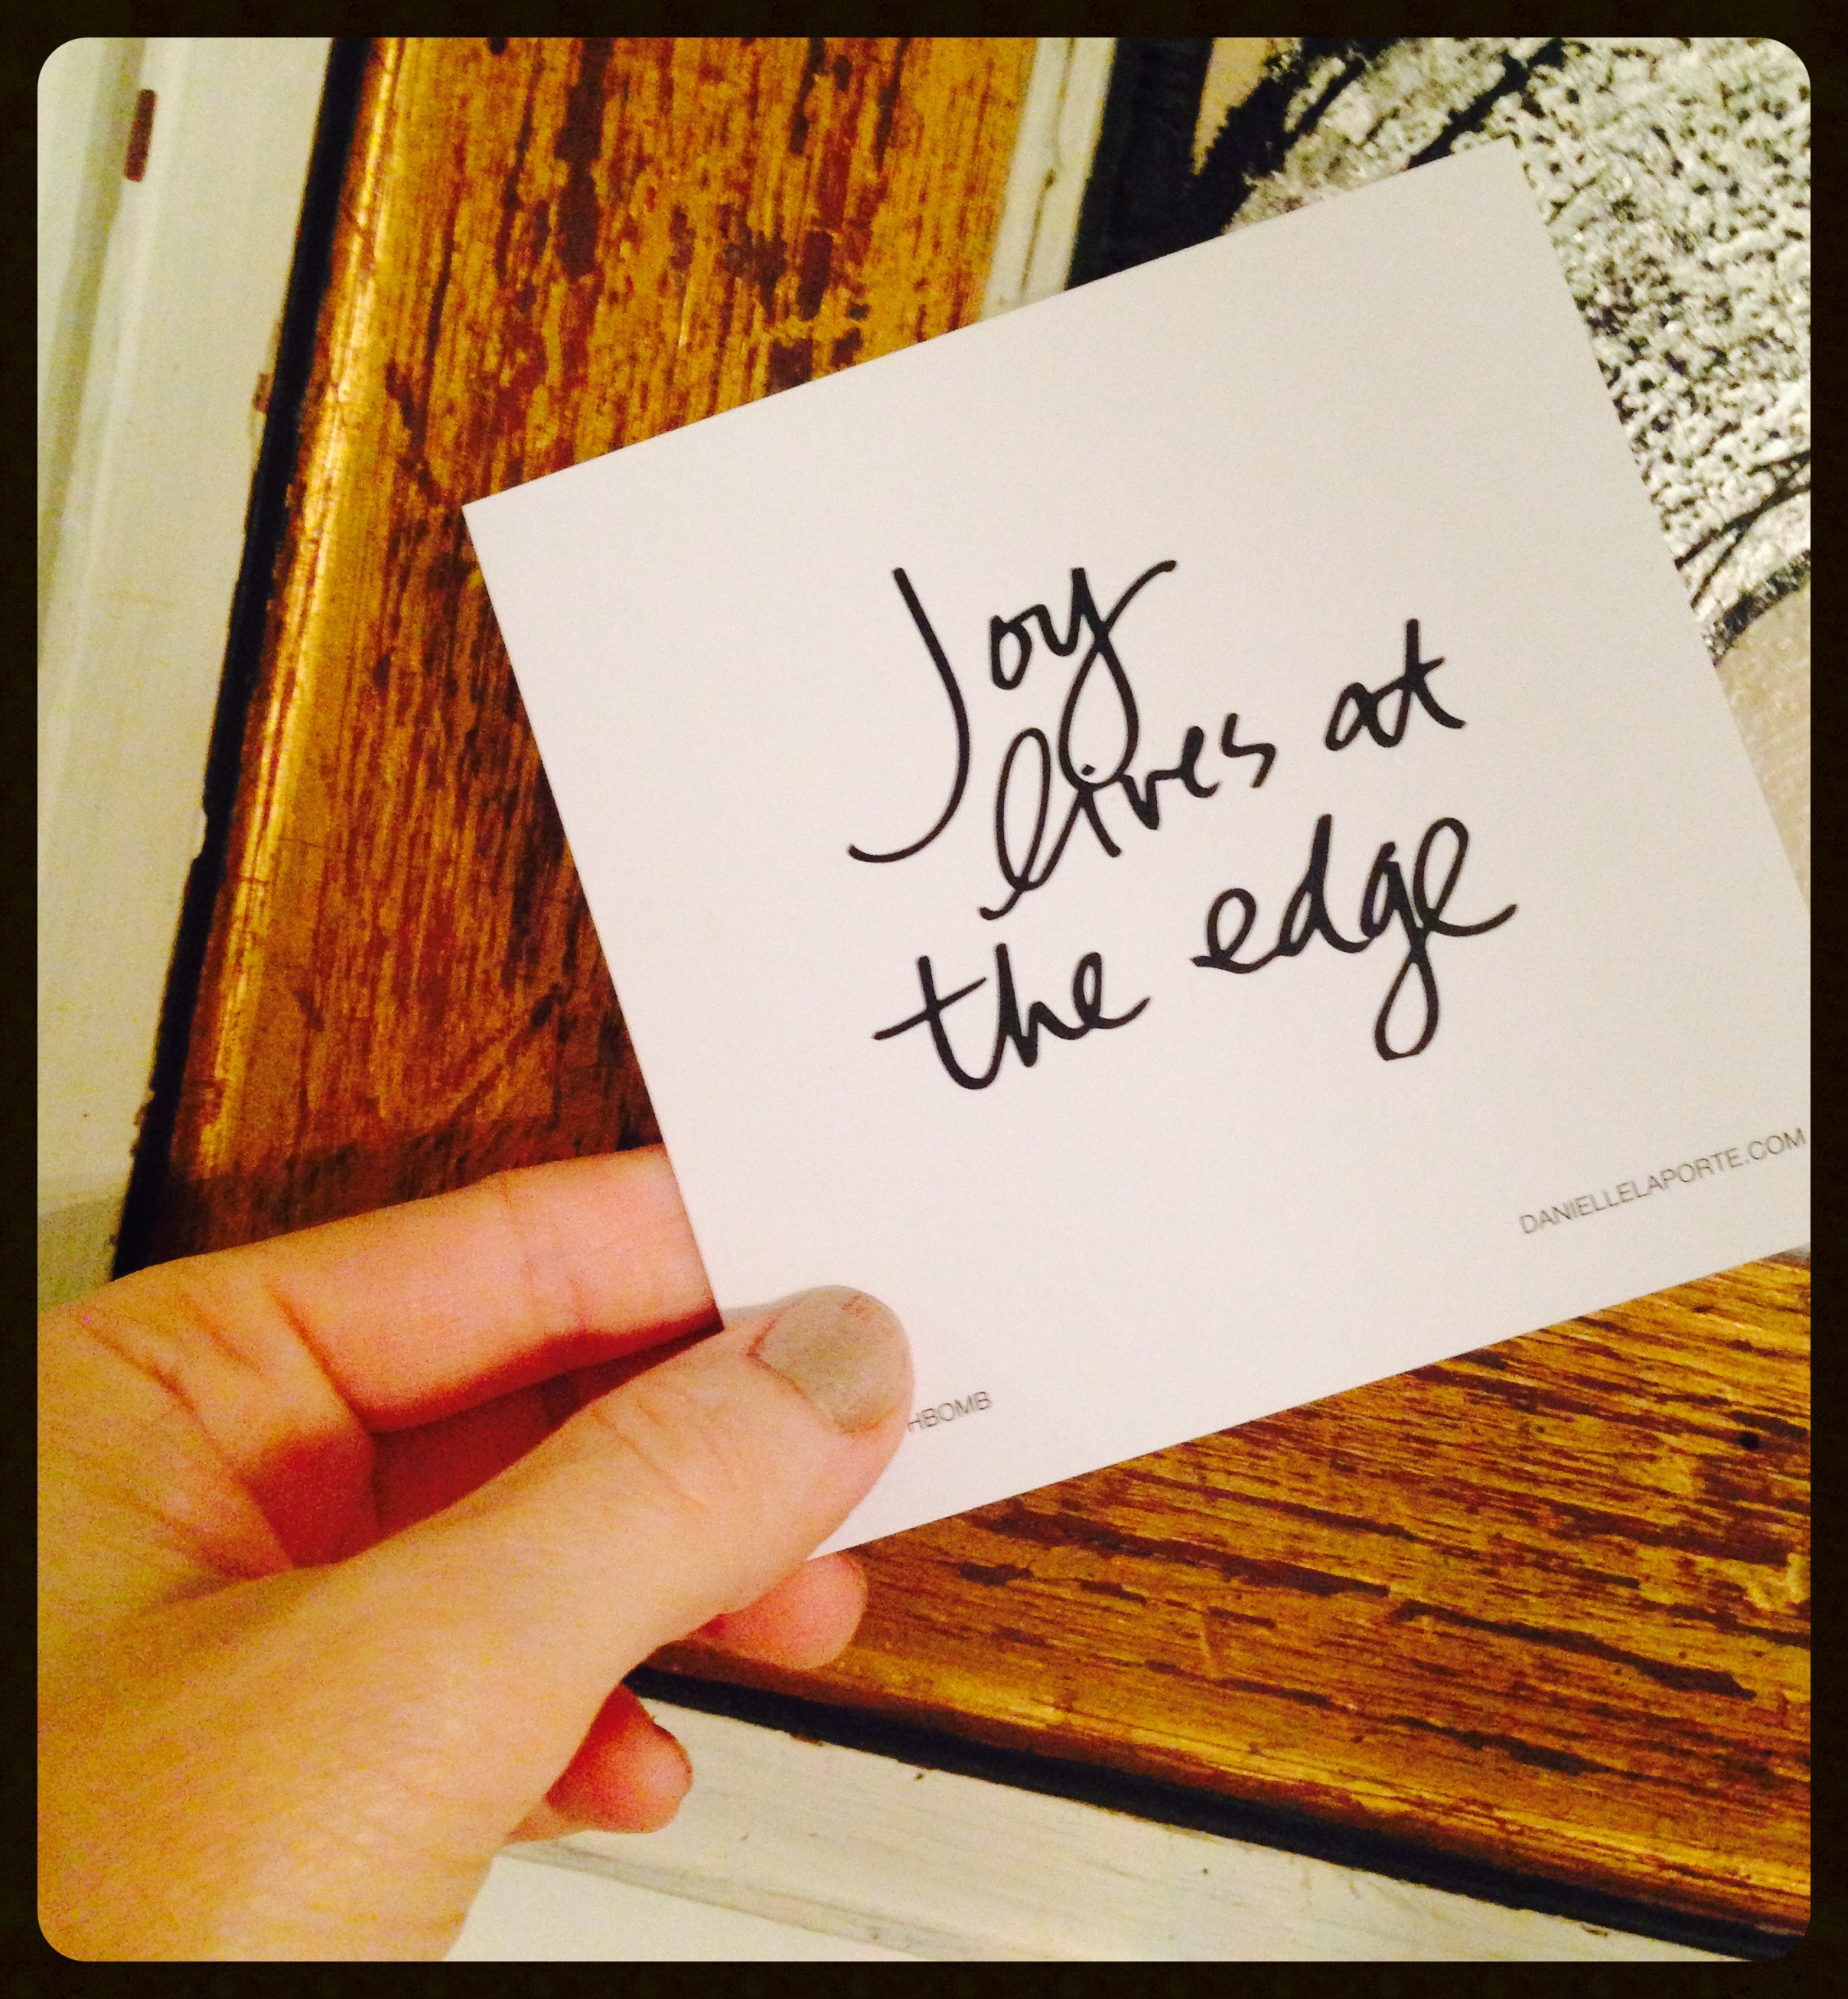 Joy
lives at
the edge
DANIELLELAPORTE.COM